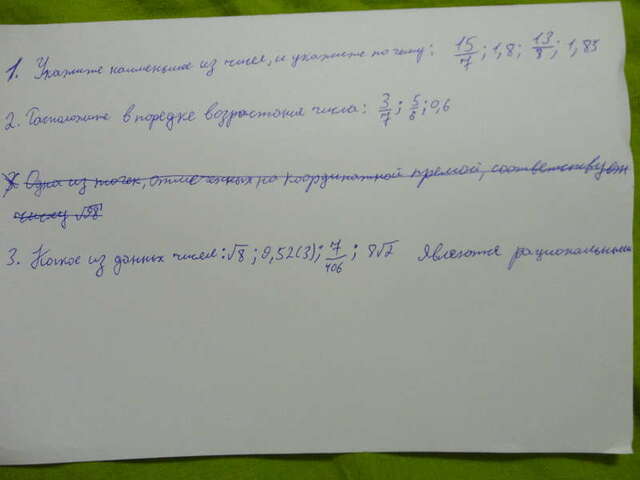 1. Укажите наименьшее из чисел, и укажите почему: 15/7; 1,8; 13/3; 1,83
2. Расположите в порядке возрастания числа: 3/7; 5/6; 0,6
Одна из точек, отмеченных на координатной прямой, соответствует
числу √98
3. Какое из данных чисел: √8; 9,52(3); 7/406; 8√2 является рациональным